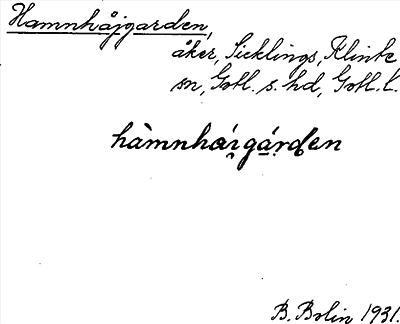 Hamnhåjgarden,
åker, Sicklings, Klinte
sn, Gotl. s. hd, Gotl. l.
hàmnhái̯gá̤r̥den
B. Bolin 1931.